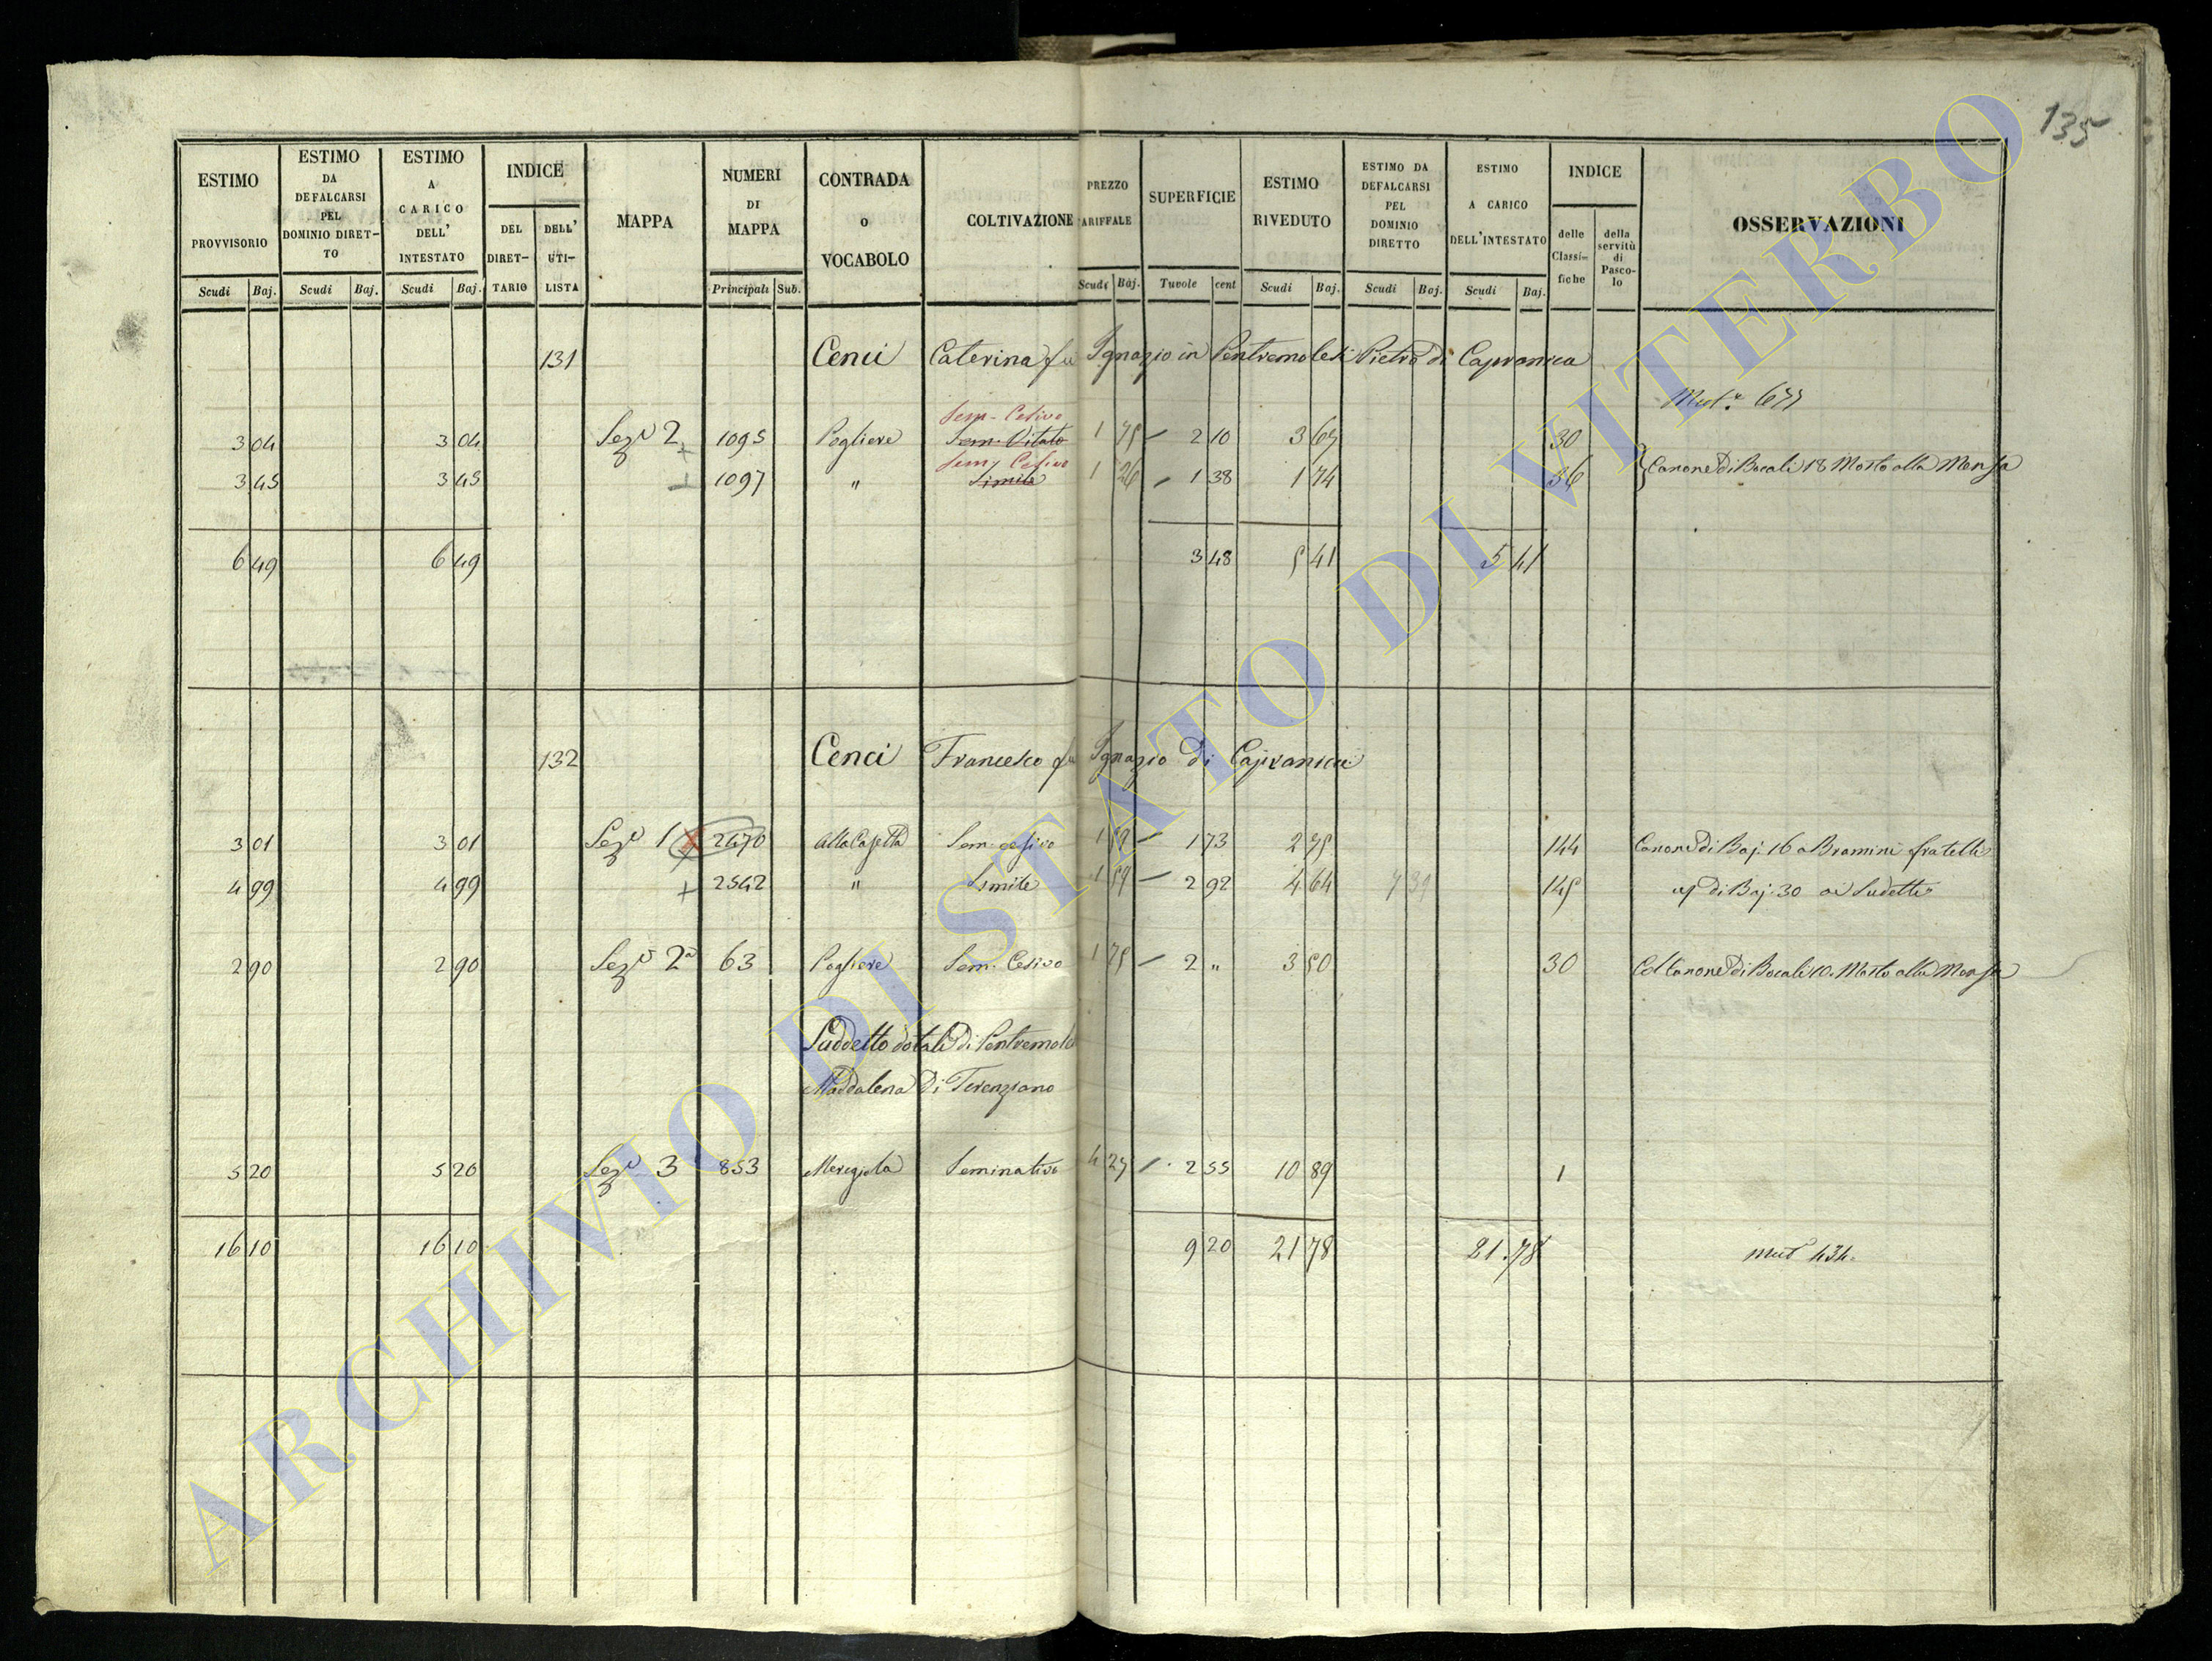 135
ESTIMO PROVVISORIO Scudi Baj.
ESTIMO DA DEFALCARSI PEL DOMINIO DIRET-TO Scudi Baj.
ESTIMO A CARICO DELL' INTESTATO Scudi Baj.
INDICE DEL DIRET-TARIO DELL' UTI-LISTA
MAPPA
NUMERI DI MAPPA Principali Sub.
CONTRADA o VOCABOLO
COLTIVAZIONE
PREZZO TARIFFALE Scudi Baj.
SUPERFICIE Tavole cent
ESTIMO RIVEDUTO Scudi Baj.
ESTIMO DA DEFALCARSI PEL DOMINIO DIRETTO Scudi Baj.
ESTIMO A CARICO DELL'INTESTATO Scudi Baj.
INDICE delle Classi-fiche della servitù di Pasco-lo
OSSERVAZIONI
131 Cenci Caterina fu Ignazio in Pentremolesi Pietro di Capranica
Mut.e 677
Sem. Cesivo
3 04 3 04 Sez.e 2 + 1095 Pogliere Sem. Vitato 1 75 2 10 3 67 30
Sem. Cesivo
3 45 3 45 + 1097 " Simile 1 26 1 38 1 74 36 Canone di Bocali 18 Mosto alla Mensa
6 49 6 49 3 48 5 41 5 41
132 Cenci Francesco fu Ignazio di Capranica
3 01 3 01 Sez.e 1 2470 Alla Casetta Sem. cesivo 1 59 1 73 2 75 144 Canone di Baj. 16 a Bramini fratelli
4 99 4 99 + 2542 " Simile 1 59 2 92 4 64 7 39 145 di Baj. 30 ai Sudetti
2 90 2 90 Sez.e 2a 63 Pogliere Sem. Cesivo 1 75 2 " 3 50 30 Col Canone di Bocali 10. Mosto alla Mensa
Suddetto dotali di Pentremole
Maddalena di Terenziano
5 20 5 20 Sez.e 3 853 Seminativo 4 27 2 55 10 89 1
16 10 16 10 9 20 21 78 21.78 mut 434.
ARCHIVIO DI STATO DI VITERBO